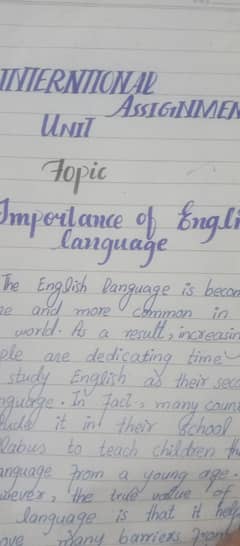 INTERNTIONAL
ASSIGNMEN
UNIT
Topic
Importance of Engli
language
The English language is becom
re and more common in
world. As a result, increasin
ple are dedicating time
study English as their seco
nguage. In fact, many coun
lude it in their school
llabus to teach children th
anguage from a young age.
wever, the true value of
language is that it help
ove many barriers from